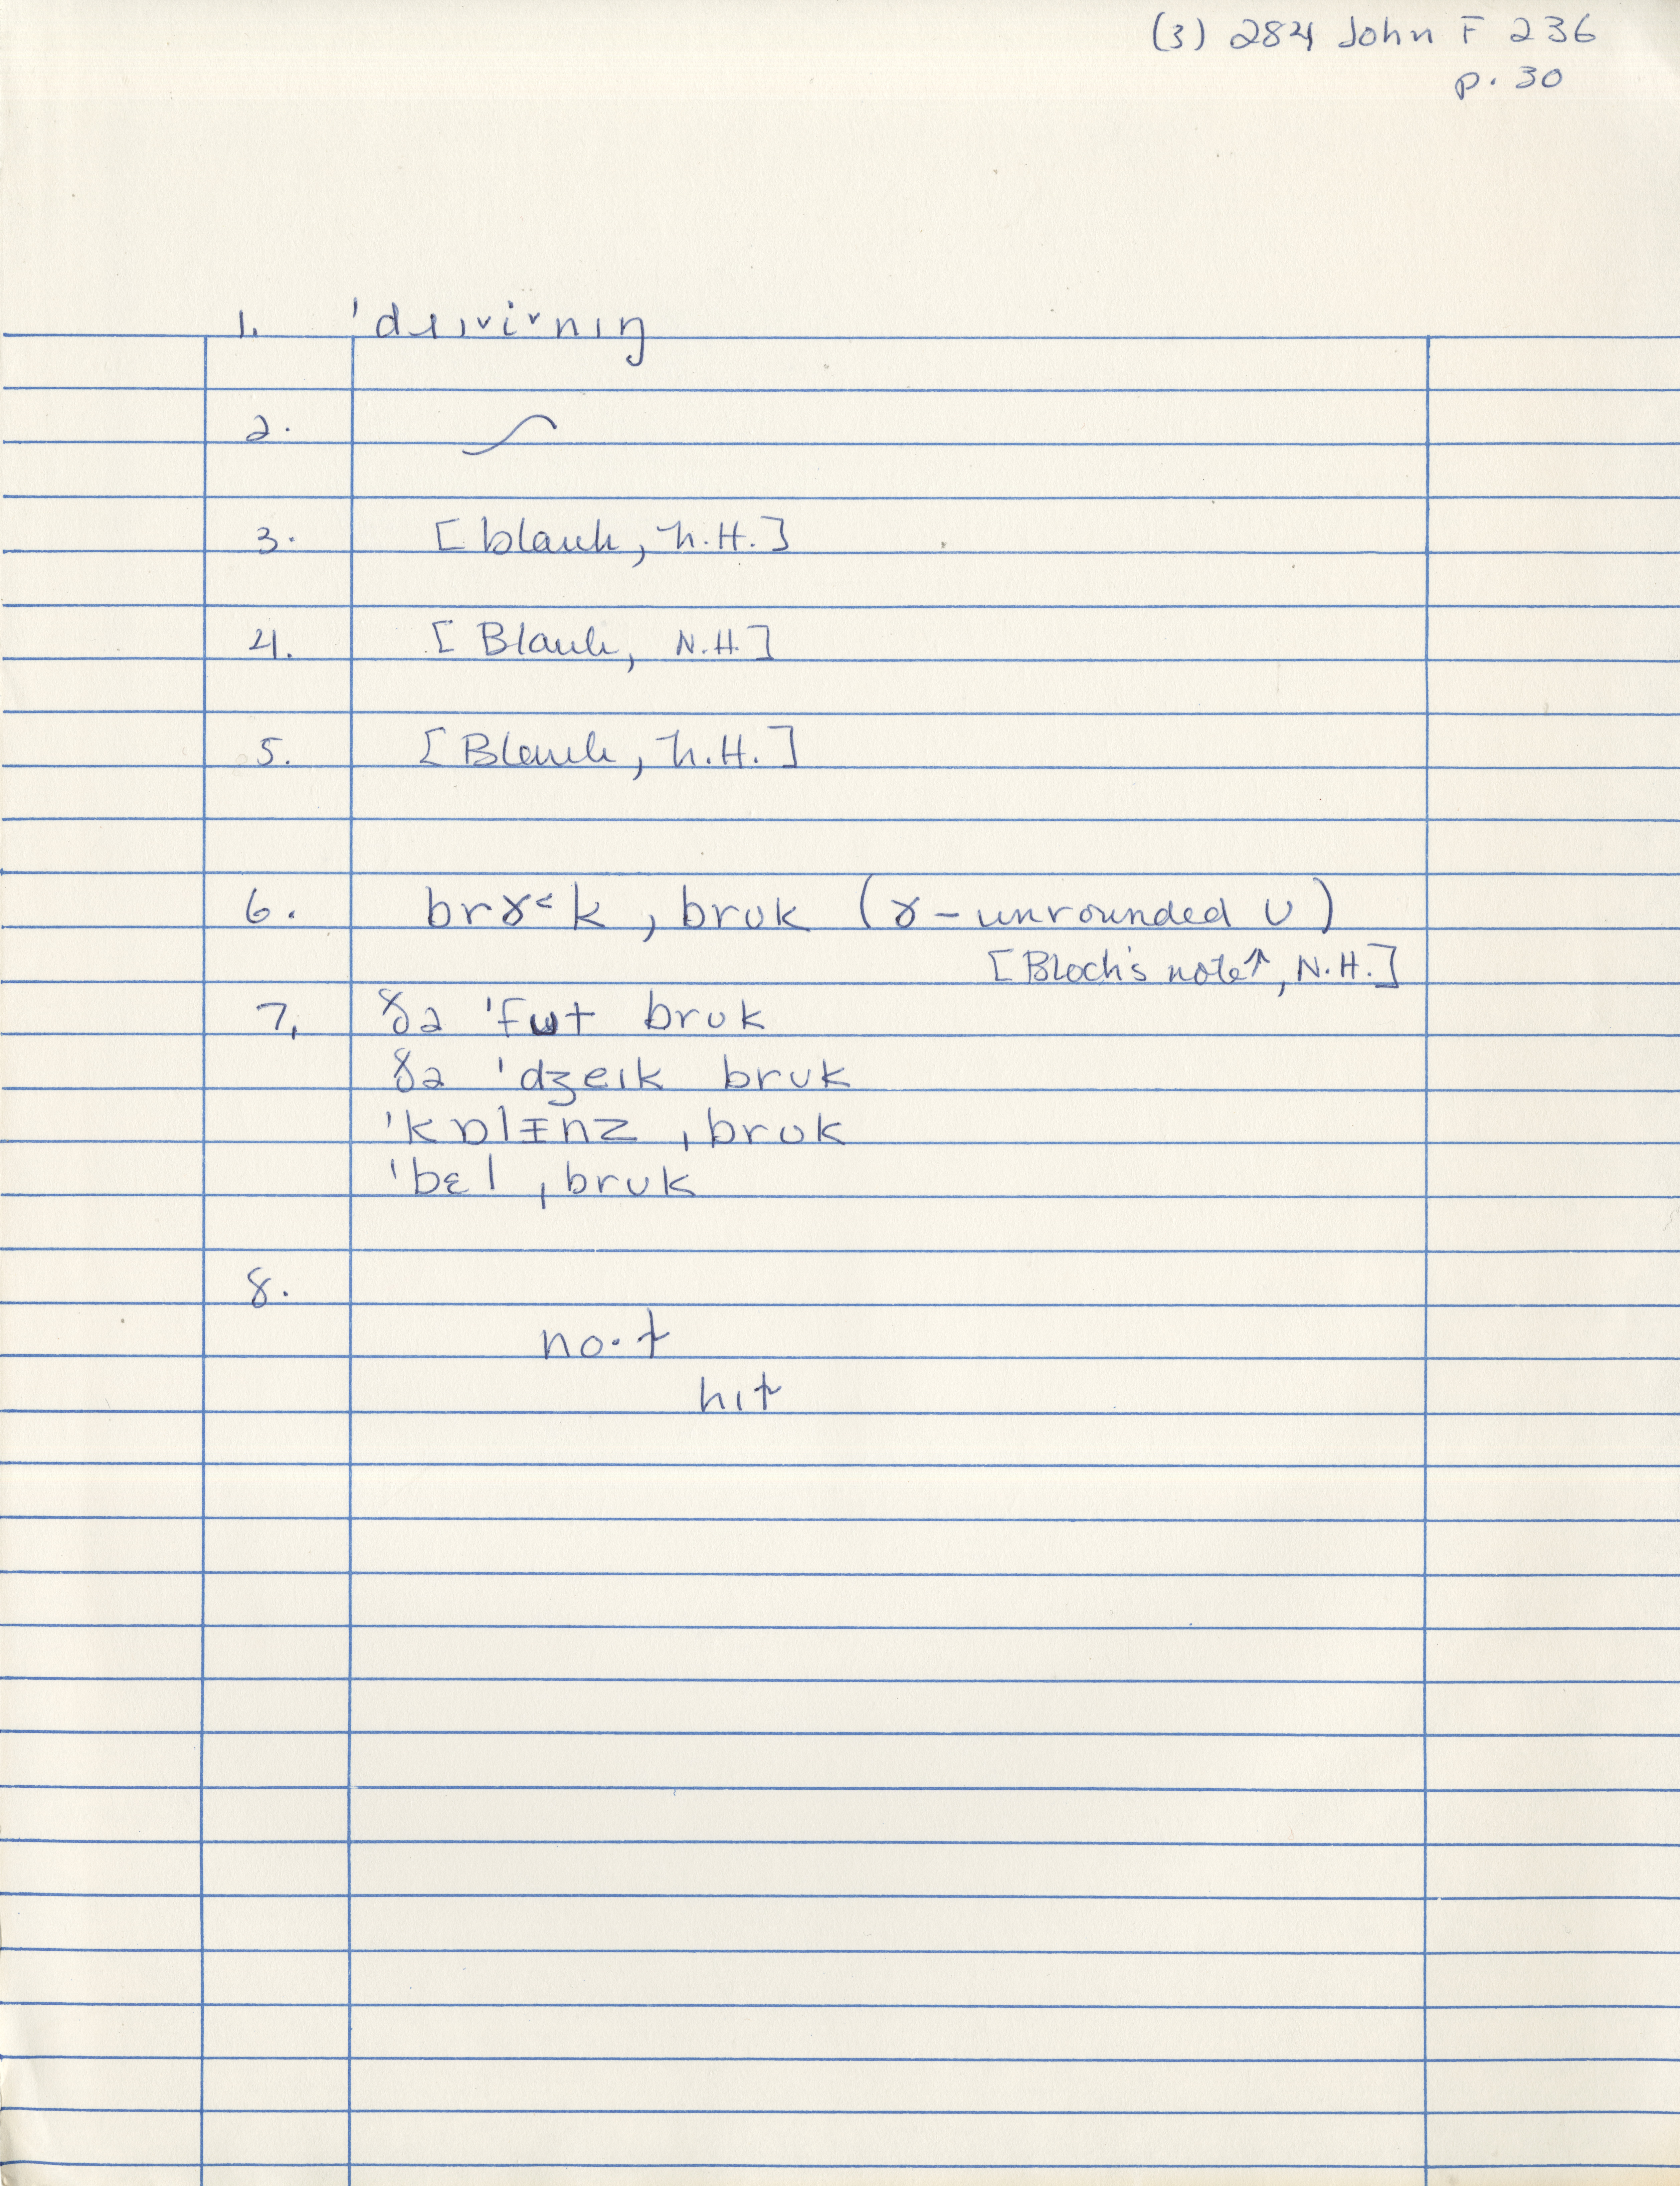 (3) 284 John F 236
p. 30
1.
2.
3. [blank, N.H.]
4. [Blank, N.H.]
5. [Blank, N.H.]
6. brɤ˂k, brʊk (ɤ – unrounded ʊ)
[Bloch's note↑, N.H.]
7. ðə 'fʊt brʊk
ðə 'dʒeɪk brʊk
'kɒlɪnz ˌbrʊk
'bɛl ˌbrʊk
8.
no·t
hɪt